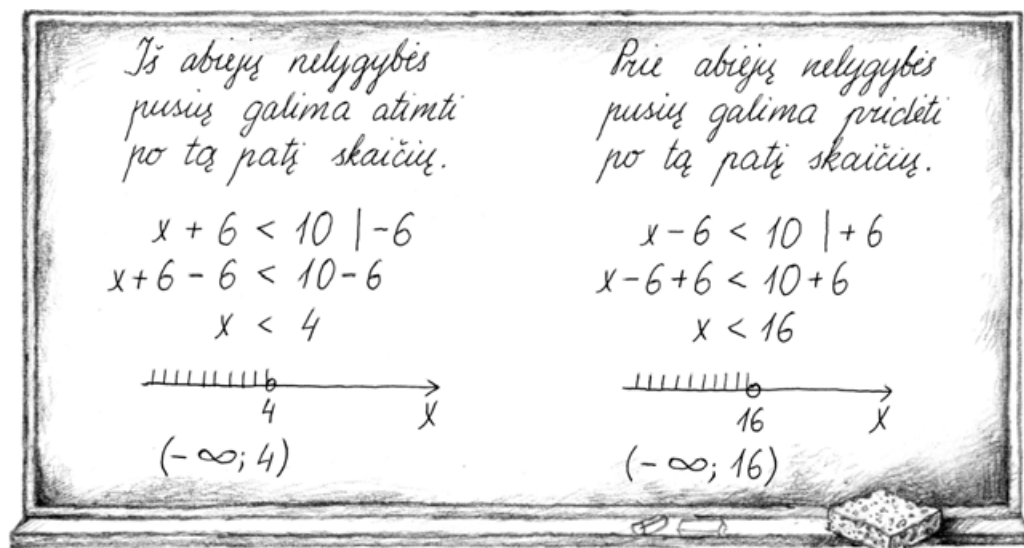 Iš abiejų nelygybės
pusių galima atimti
po tą patį skaičių.
x + 6 < 10 | -6
x+6 - 6 < 10 - 6
x < 4
4
x
(- ∞; 4)
Prie abiejų nelygybės
pusių galima pridėti
po tą patį skaičių.
x - 6 < 10 | + 6
x - 6 + 6 < 10 + 6
x < 16
16
x
(- ∞; 16)